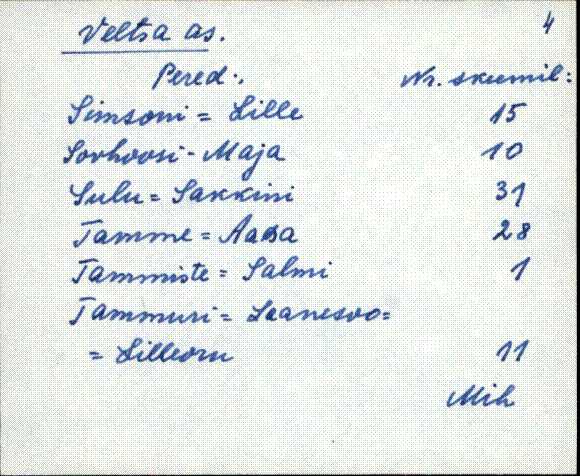 Veltsa as. 4
Pered.. Nr. skeemil:
Simsoni = Lille 15
Sorhoosi - Maja 10
Sulu = Sakkini 31
Tamme = Aasa 28
Tammiste = Salmi 1
Tammuri = Laanesoo =
= Lilleoru 11
Mih